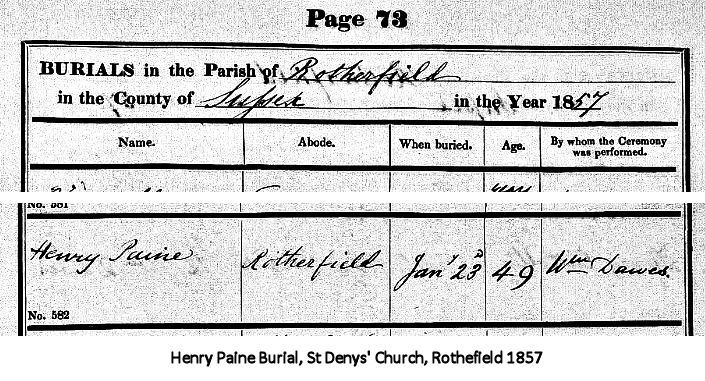 Page 73
BURIALS in the Parish of Rotherfield
in the County of Sussex in the Year 1857
Name. Abode. When buried. Age. By whom the Ceremony was performed.
No. 581
Henry Paine Rotherfield Jany 23d 49 Wm Dawes.
No. 582
Henry Paine Burial, St Denys' Church, Rothefield 1857